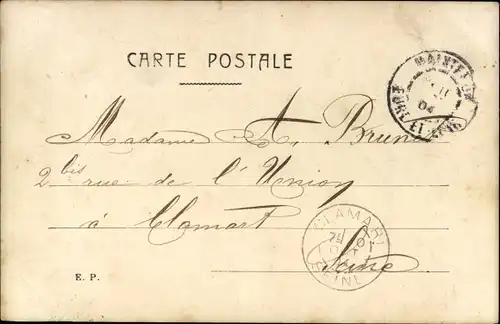 CARTE POSTALE
MAINTENON
04
EURE ET LOIR
Madame A. Brune
2 bis rue de l'Union
à Clamart
Seine
CLAMART
SEINE
E. P.